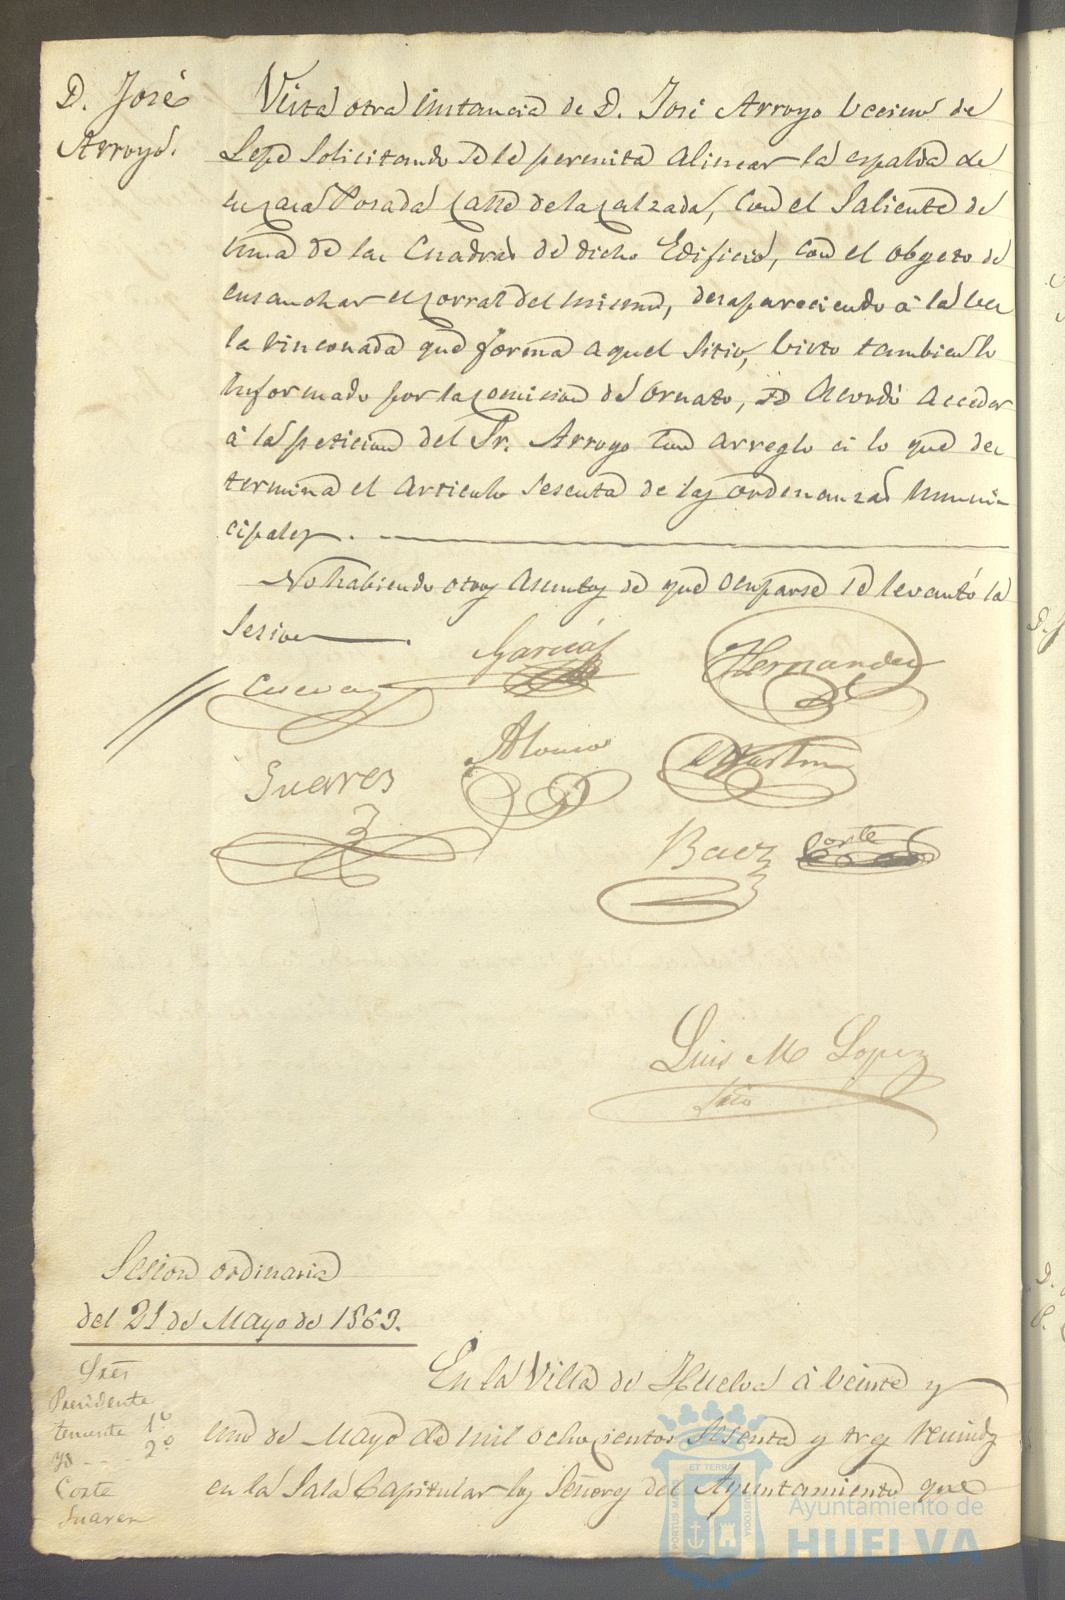 D. José
Arroyo.
Vista otra instancia de D. José Arroyo vecino de
Lepe Solicitando se le permita alinear la espalda de
su casa Posada Calle de la Calzada, con el Saliente de
una de las Cuadras de dicho Edificio, con el obgeto de
ensanchar el corral del mismo, desapareciendo á la vez
la rinconada que forma aquel Sitio, visto tambien lo
informado por la comision de ornato, se Acordó Acceder
á la peticion del Sr. Arroyo con arreglo á lo que de
termina el articulo Sesenta de las ordenanzas muni
cipales.
No habiendo otros asuntos de que ocuparse se levantó la
Sesion.
Cueva
Garcia
Hernandez
Suares
Alonso
Martin
Baez
Corte
Luis M Lopez
Srio
Sesion ordinaria
del 21 de Mayo de 1863.
Sres
Presidente
teniente 1º
yd - - - 2º
Corte
Suarez
En la Villa de Huelva á veinte y
uno de Mayo de mil ochocientos sesenta y tres reunidos
en la Sala Capitular los Señores del Ayuntamiento que
PORTUS MARIS
ET TERRAE
CUSTODIA
Ayuntamiento de
HUELVA